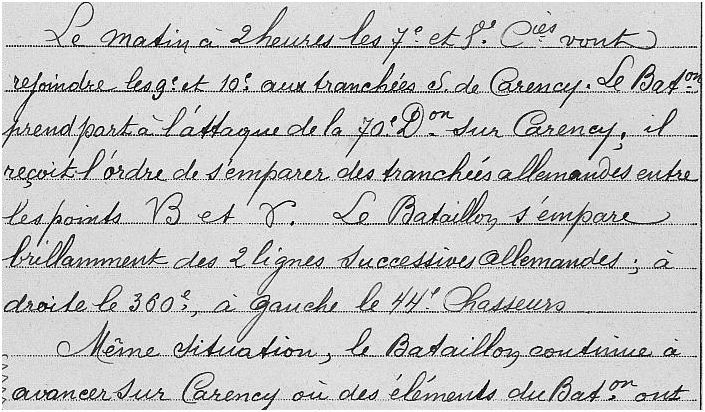 Le matin à 2 heures les 7e et 8e Cies vont
rejoindre les 9e et 10e aux tranchées S. de Carency. Le Baton
prend part à l'attaque de la 70e Don sur Carency; il
reçoit l'ordre de s'emparer des tranchées allemandes entre
les points B et V. Le Bataillon s'empare
brillamment des 2 lignes successives allemandes; à
droite le 360e, à gauche le 44e Chasseurs
Même situation, le Bataillon continue à
avancer sur Carency où des éléments du Baton ont